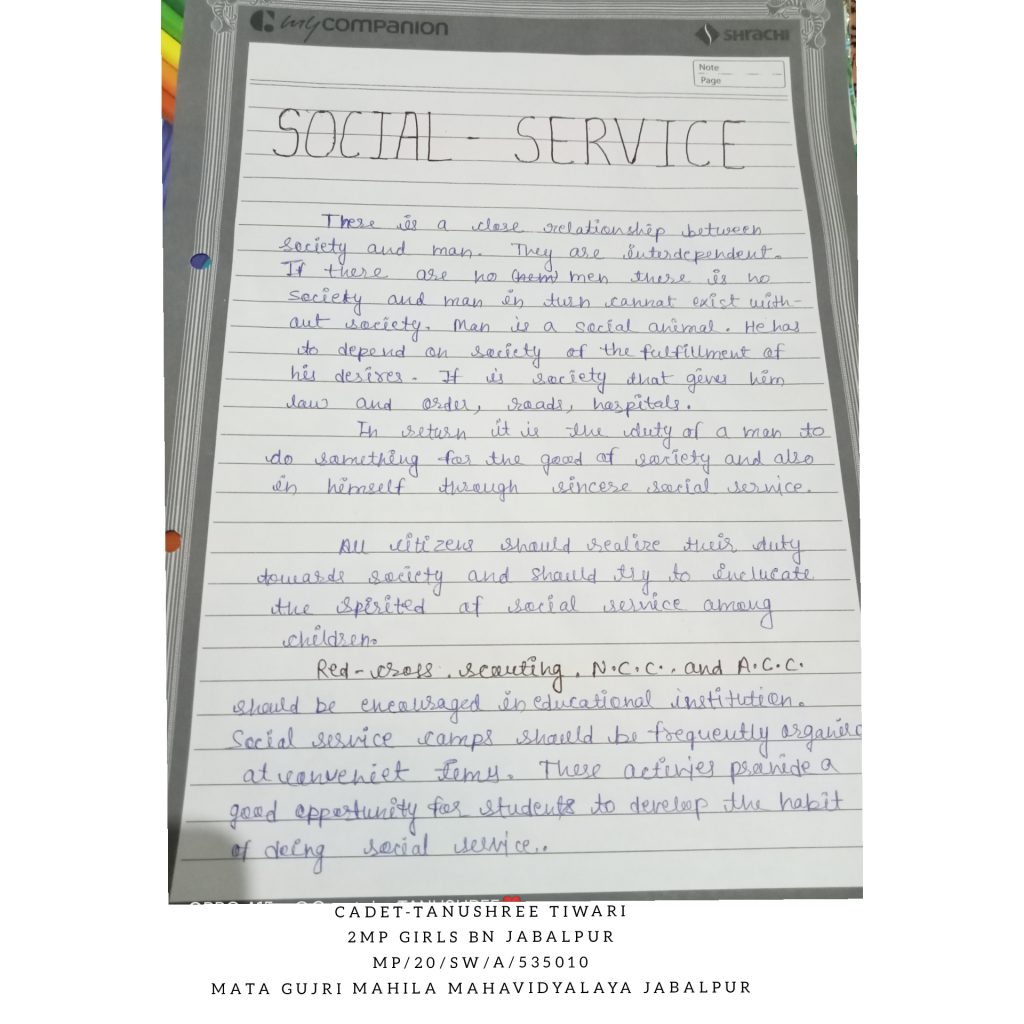 my companion
SHRACHI
Note
Page
SOCIAL - SERVICE
There is a close relationship between
society and man. They are interdependent.
If there are no men there is no
society and man in turn cannot exist with-
out society. Man is a social animal. He has
to depend on society of the fulfillment of
his desires. If is society that gives him
law and order, roads, hospitals.
In return it is the duty of a man to
do something for the good of society and also
in himself through sincere social service.
All citizens should realize their duty
towards society and should try to inclucate
the spirited of social service among
children.
Red-cross, scouting, N.C.C., and A.C.C.
should be encouraged in educational institution.
Social service camps should be frequently organise
at conveniet
These provide a
good opportunity for students to develop the habit
of doing social service..
CADET-TANUSHREE TIWARI
2MP GIRLS BN JABALPUR
MP/20/SW/A/535010
MATA GUJRI MAHILA MAHAVIDYALAYA JABALPUR